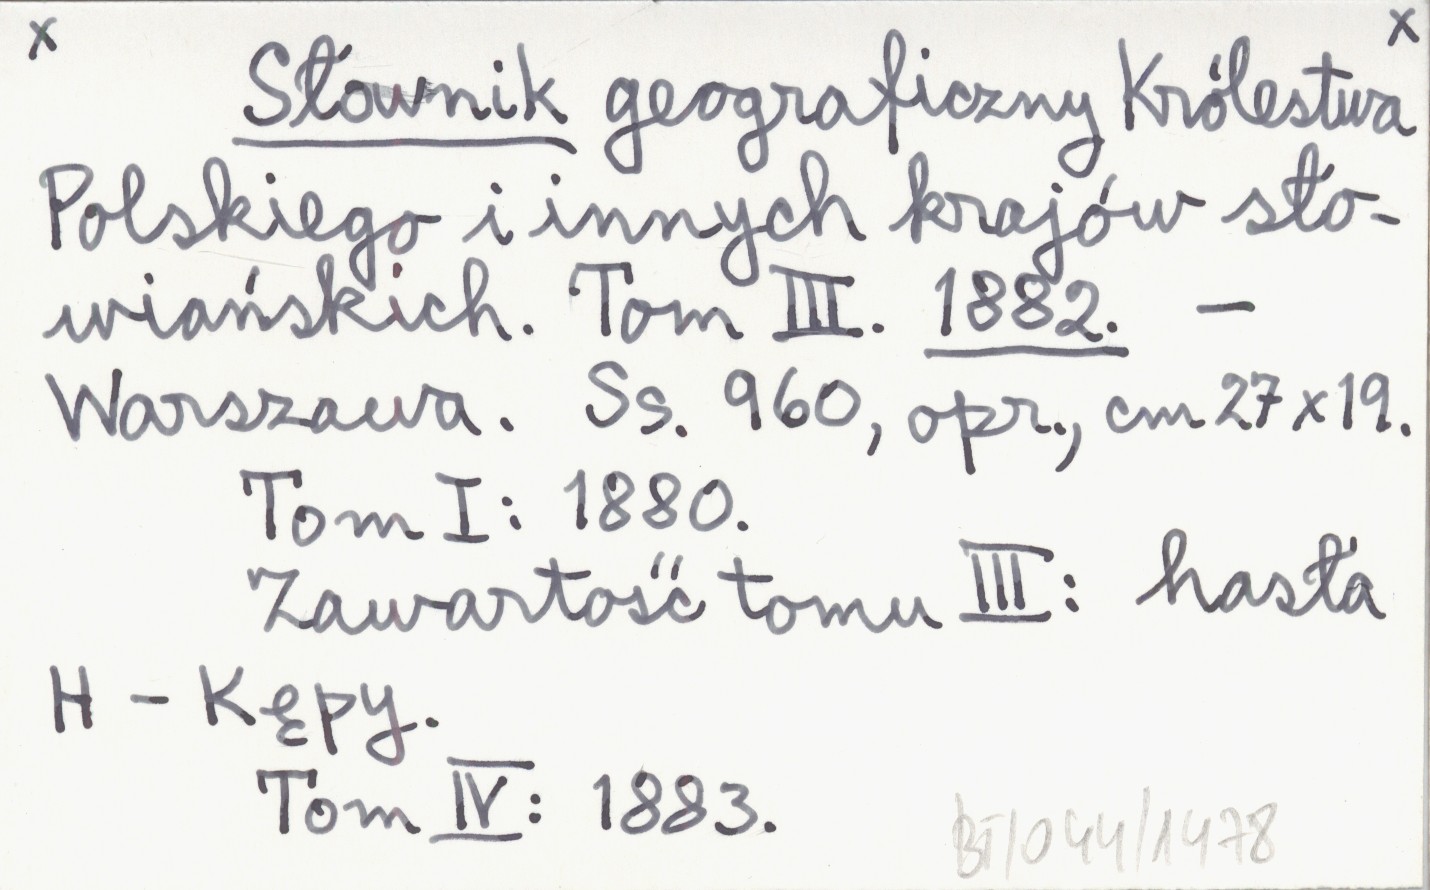 x x
Słownik geograficzny Królestwa
Polskiego i innych krajów sło-
wiańskich. Tom III. 1882. —
Warszawa. Ss. 960, opr., cm 27x19.
Tom I: 1880.
Zawartość tomu III: hasła
H - Kępy.
Tom IV: 1883.
BT/044/1478